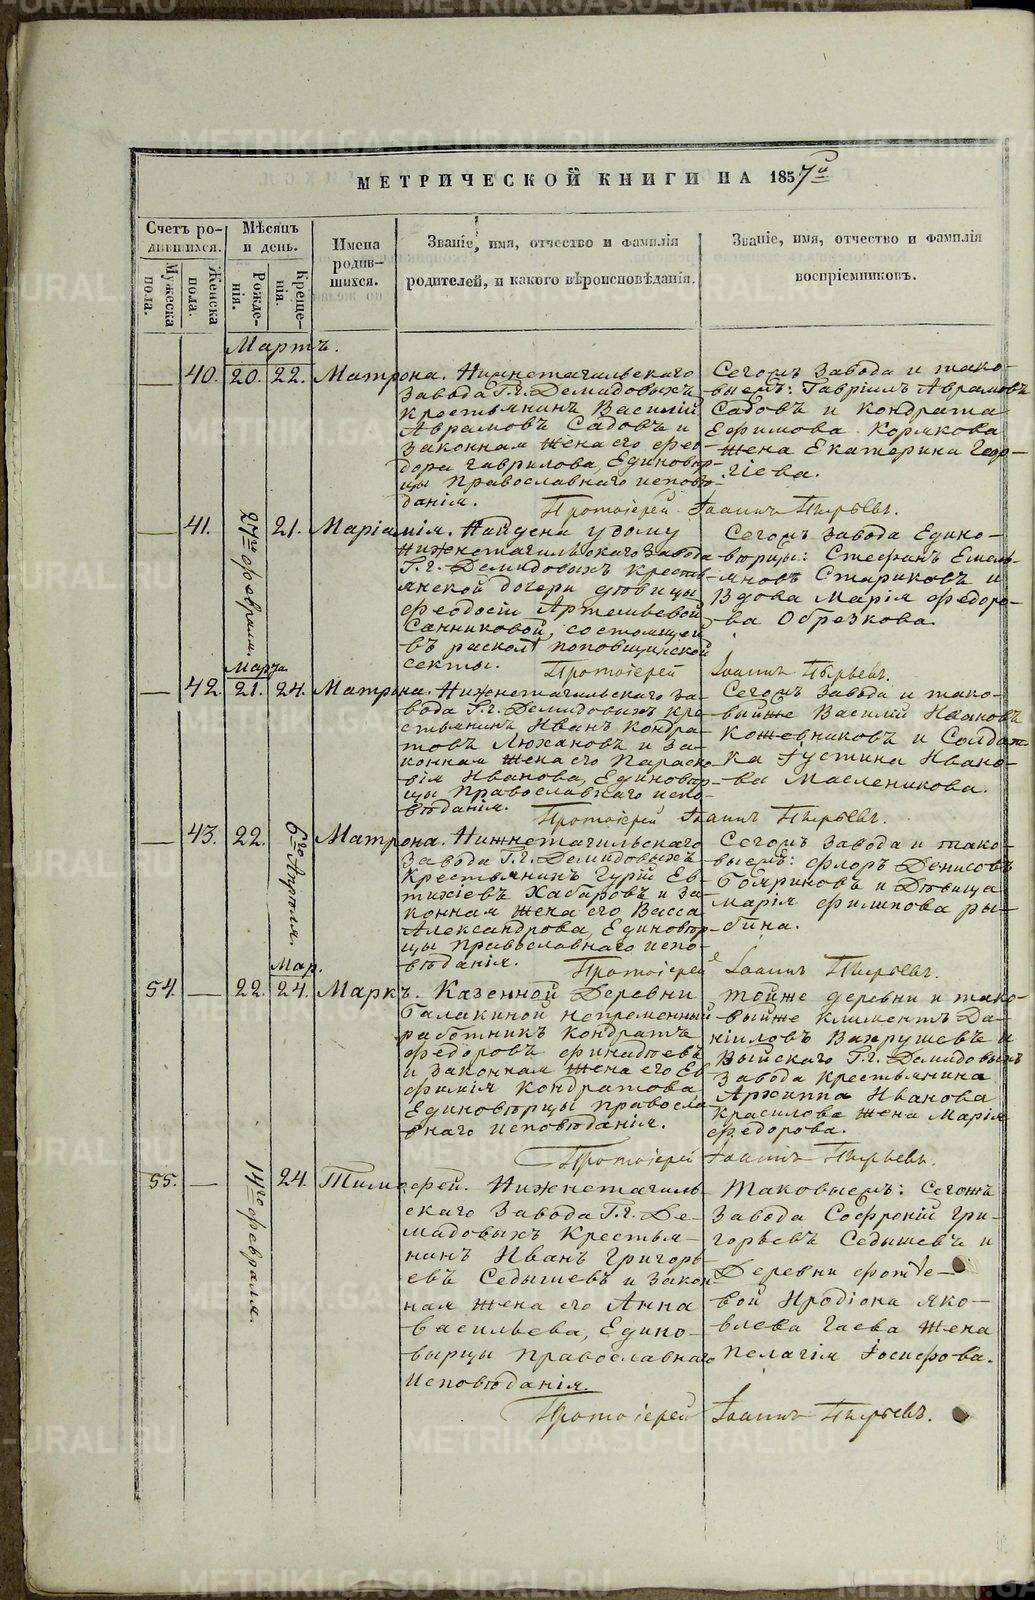 МЕТРИЧЕСКОЙ КНИГИ НА 1857й
Счетъ ро-
дившихся.
Мѣсяцъ
и день.
Имена
родив-
шихся.
Званіе, имя, отчество и фамилія
родителей, и какого вѣроисповѣданія.
Званіе, имя, отчество и фамилія
воспріемниковъ.
Мужеска
пола.
Женска
пола.
Рожде-
нія.
Креще-
нія.
Мартъ.
— 40. 20. 22. Матрона. Нижнетагильскаго
завода Г.г. Демидовыхъ
крестьянинъ Василій
Аврамовъ Садовъ и
законная жена его Фео-
дора Гаврилова, Единовѣр-
цы Православнаго исповѣ-
данія.
Сегожъ завода и тако-
выежъ: Гавріилъ Аврамовъ
Садовъ и Кондрата
Ефимова Корякова
жена Екатерина Геор-
гіева.
Протоіерей Іоаннъ Пырьевъ.
— 41. 27го февраля. 21. Маріамія. Найдена у дому
Нижнетагильскаго завода
Г.г. Демидовыхъ крестья-
янской дочери дѣвицы
Феодосіи Артемьевой
Санниковой, состоящей
въ расколѣ поповщинской
секты.
Сегожъ завода Едино-
вѣрцы: Стефанъ Емель-
яновъ Стариковъ и
Вдова Марія Федоро-
ва Обрезкова.
Протоіерей Іоаннъ Пырьевъ.
Марта
— 42. 21. 24. Матрона. Нижнетагильскаго за-
вода Г.г. Демидовыхъ кре-
стьянинъ Иванъ Кондра-
товъ Люхановъ и за-
конная жена его Параске-
вія Иванова, Единовѣр-
цы Православнаго испо-
вѣданія.
Сегожъ завода и тако-
выйже Василій Ивановъ
Кожевниковъ и Солдат-
ка Іустина Ивано-
ва Масленикова.
Протоіерей Іоаннъ Пырьевъ.
— 43. 22. 6го Апрѣля. Матрона. Нижнетагильскаго
завода Г.г. Демидовыхъ
Крестьянинъ Гурій Ев-
тихіевъ Хабаровъ и за-
конная жена его Васса
Александрова, Единовѣр-
цы Православнаго испо-
вѣданія.
Сегожъ завода и тако-
выежъ: Флоръ Денисовъ
Бояриновъ и Дѣвица
Марія Филипова Ры-
бина.
Протоіерей Іоаннъ Пырьевъ.
Мар.
54. — 22. 24. Маркъ. Казенной Деревни
Галакиной непременный
работникъ Кондратъ
Федоровъ Финадѣевъ
и законная жена его Ев-
фимія Кондратова
Единовѣрцы правосла-
внаго исповѣданія.
Тойже деревни и тако-
выйже Климентъ Да-
ніиловъ Вахрушевъ и
Выйскаго Г.г. Демидовыхъ
завода крестьянина
Архиппа Иванова
Красилова жена Марія
Федорова.
Протоіерей Іоаннъ Пырьевъ.
55. — 14го февраля. 24. Тимофей. Нижнетагиль-
скаго завода Г.г. Де-
мидовыхъ Крестья-
нинъ Иванъ Григорь-
евъ Седышевъ и закон-
ная жена его Анна
Васильева, Едино-
вѣрцы православнаго
исповѣданія.
Таковыежъ: Сегожъ
завода Софроній Гри-
горьевъ Седышевъ и
Деревни Фотѣе-
вой Иродіона Яко-
влева Гаева жена
Пелагія Іосифова.
Протоіерей Іоаннъ Пырьевъ.
METRIKI.GASO-URAL.RU